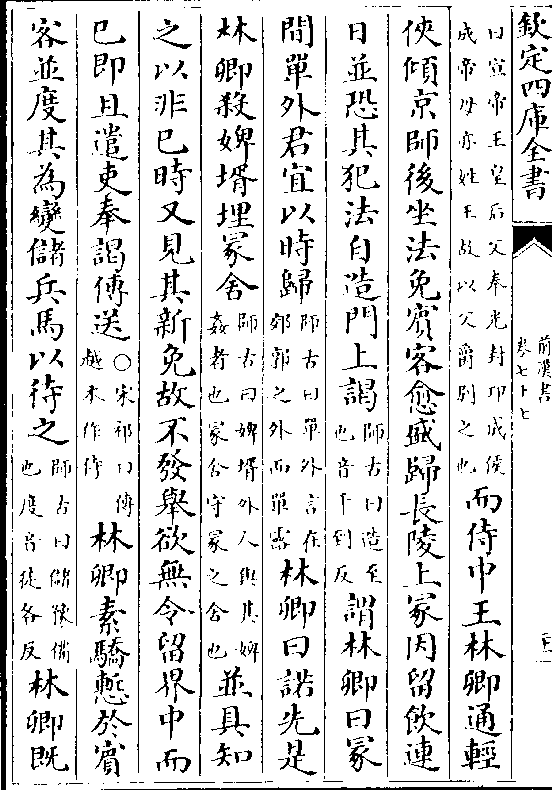 欽定四庫全書
前漢書
卷七十七
曰宣帝王皇后父奉光封邛成侯
成帝母亦姓王故以父爵别之也
而侍中王林卿通輕
俠傾京師後坐法免賓客愈盛歸長陵上冢因留飲連
日並恐其犯法自造門上謁
師古曰造至
也音千到反
謂林卿曰冢
間單外君宜以時歸
師古曰單外言在
郊郭之外而單露
林卿曰諾先是
林卿殺婢壻埋冢舍
師古曰婢壻外人與其婢
姦者也冢舍守冢之舍也
並具知
之以非已時又見其新免故不發舉欲無令留界中而
已即且遣吏奉謁傳送
○宋祁曰傳
越本作侍
林卿素驕慙於賓
客並度其為變儲兵馬以待之
師古曰儲豫備
也度音徒各反
林卿既